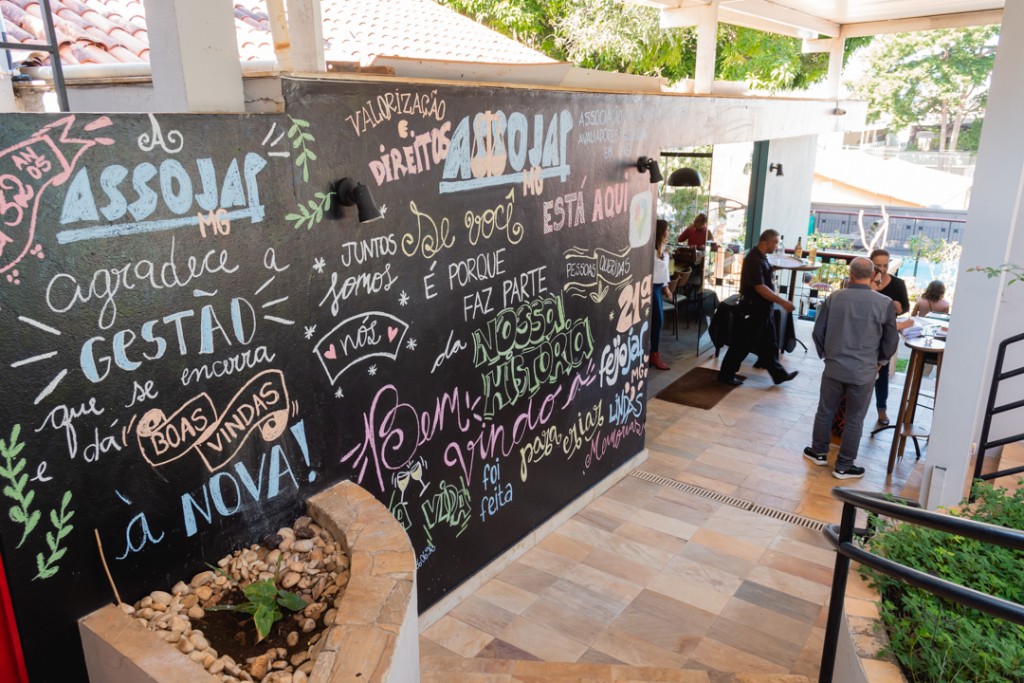 52 AN
05
A
ASSOJAF
MG
agradece a
GESTÃO
que se encerra
e dá
BOAS
VINDAS
à NOVA!
VALORIZAÇÃO
E
DIREITOS
ASSOJAF
MG
ESTÁ AQUI
JUNTOS
somos
nós
Se você
É PORQUE
FAZ PARTE
da NOSSA
HISTÓRIA
PESSOAS QUERIDAS
Bem
Vindos
21ª
feijojaf
MG
para criar
LINDAS
Memórias
VIDA
foi
feita